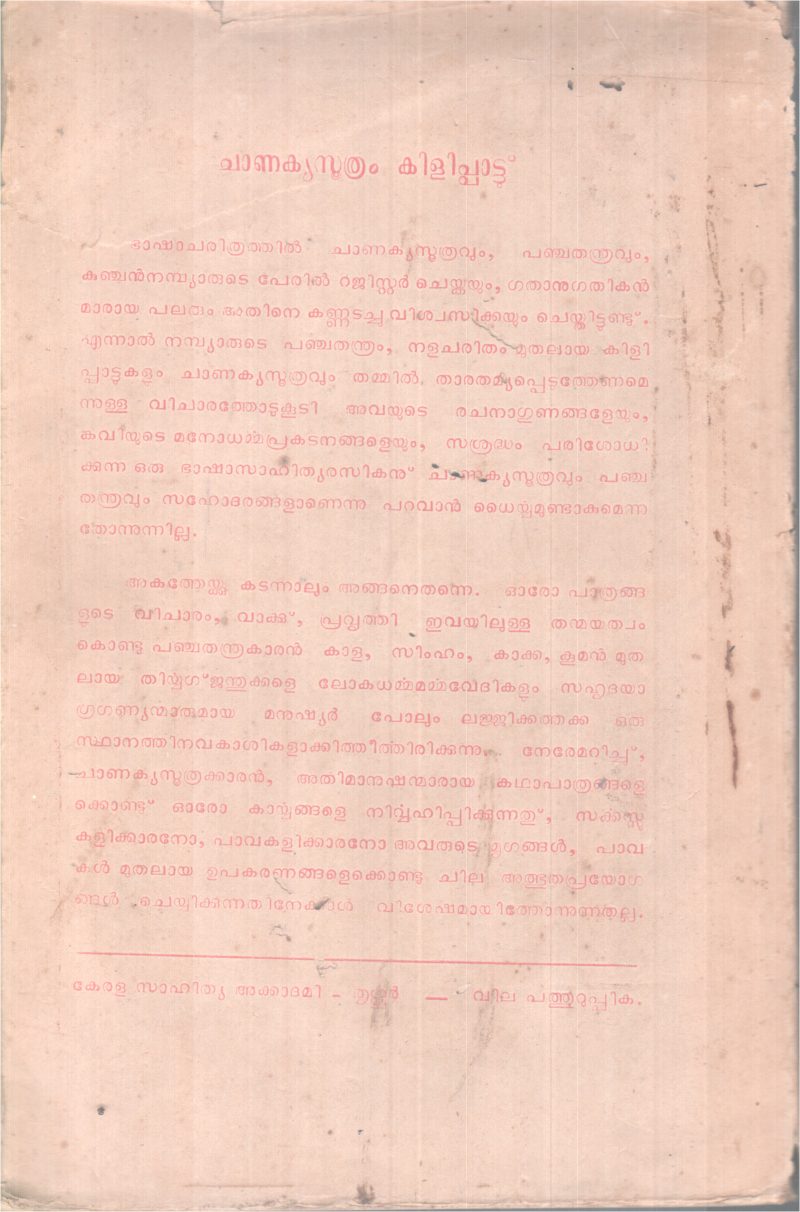 ചാണക്യസൂത്രം കിളിപ്പാട്ടു്
ഭാഷാചരിത്രത്തിൽ ചാണക്യസൂത്രവും, പഞ്ചതന്ത്രവും,
കുഞ്ചൻനമ്പ്യാരുടെ പേരിൽ റജിസ്റ്റർ ചെയ്തയും, ഗതാനുഗതികൻ
മാരായ പലരും അതിനെ കണ്ണടച്ചു വിശ്വസിക്കയും ചെയ്തിട്ടുണ്ടു്.
എന്നാൽ നമ്പ്യാരുടെ പഞ്ചതന്ത്രം, നളചരിതം മുതലായ കിളി
പ്പാട്ടുകളും ചാണക്യസൂത്രവും തമ്മിൽ താരതമ്യപ്പെടുത്തേണമെ
ന്നുള്ള വിചാരത്തോടുകൂടി അവയുടെ രചനാഗുണങ്ങളേയും,
കവിയുടെ മനോധൎമ്മപ്രകടനങ്ങളെയും, സശ്രദ്ധം പരിശോധി
ക്കുന്ന ഒരു ഭാഷാസാഹിത്യരസികനു് ചാണക്യസൂത്രവും പഞ്ച
തന്ത്രവും സഹോദരങ്ങളാണെന്നു പറവാൻ ധൈൎയ്യമുണ്ടാകുമെന്നു
തോന്നുന്നില്ല.
അകത്തേയ്ക്കു കടന്നാലും അങ്ങനെതന്നെ. ഓരോ പാത്രങ്ങ
ളുടെ വിചാരം, വാക്കു്, പ്രവൃത്തി ഇവയിലുള്ള തന്മയത്വം
കൊണ്ടു പഞ്ചതന്ത്രകാരൻ കാള, സിംഹം, കാക്ക, കൂമൻ മുത
ലായ തിൎയ്യഗ്ജന്തുക്കളെ ലോകധൎമ്മമൎമ്മവേദികളും സഹൃദയാ
ഗ്രഗണ്യന്മാരുമായ മനുഷ്യർ പോലും ലജ്ജിക്കത്തക്ക ഒരു
സ്ഥാനത്തിനവകാശികളാക്കിത്തീൎത്തിരിക്കുന്നു. നേരേമറിച്ച്,
ചാണക്യസൂത്രക്കാരൻ, അതിമാനുഷന്മാരായ കഥാപാത്രങ്ങളെ
ക്കൊണ്ടു് ഓരോ കാൎയ്യങ്ങളെ നിൎവ്വഹിപ്പിക്കുന്നതു്, സൎക്കസ്സു
കളിക്കാരനോ, പാവകളിക്കാരനോ അവരുടെ മൃഗങ്ങൾ, പാവ
കൾ മുതലായ ഉപകരണങ്ങളെക്കൊണ്ടു ചില അത്ഭുതപ്രയോഗ
ങ്ങൾ ചെയ്യിക്കുന്നതിനേക്കാൾ വിശേഷമായിത്തോന്നുന്നതല്ല.
കേരള സാഹിത്യ അക്കാദമി – തൃശൂർ — വില പത്തുറുപ്പിക.